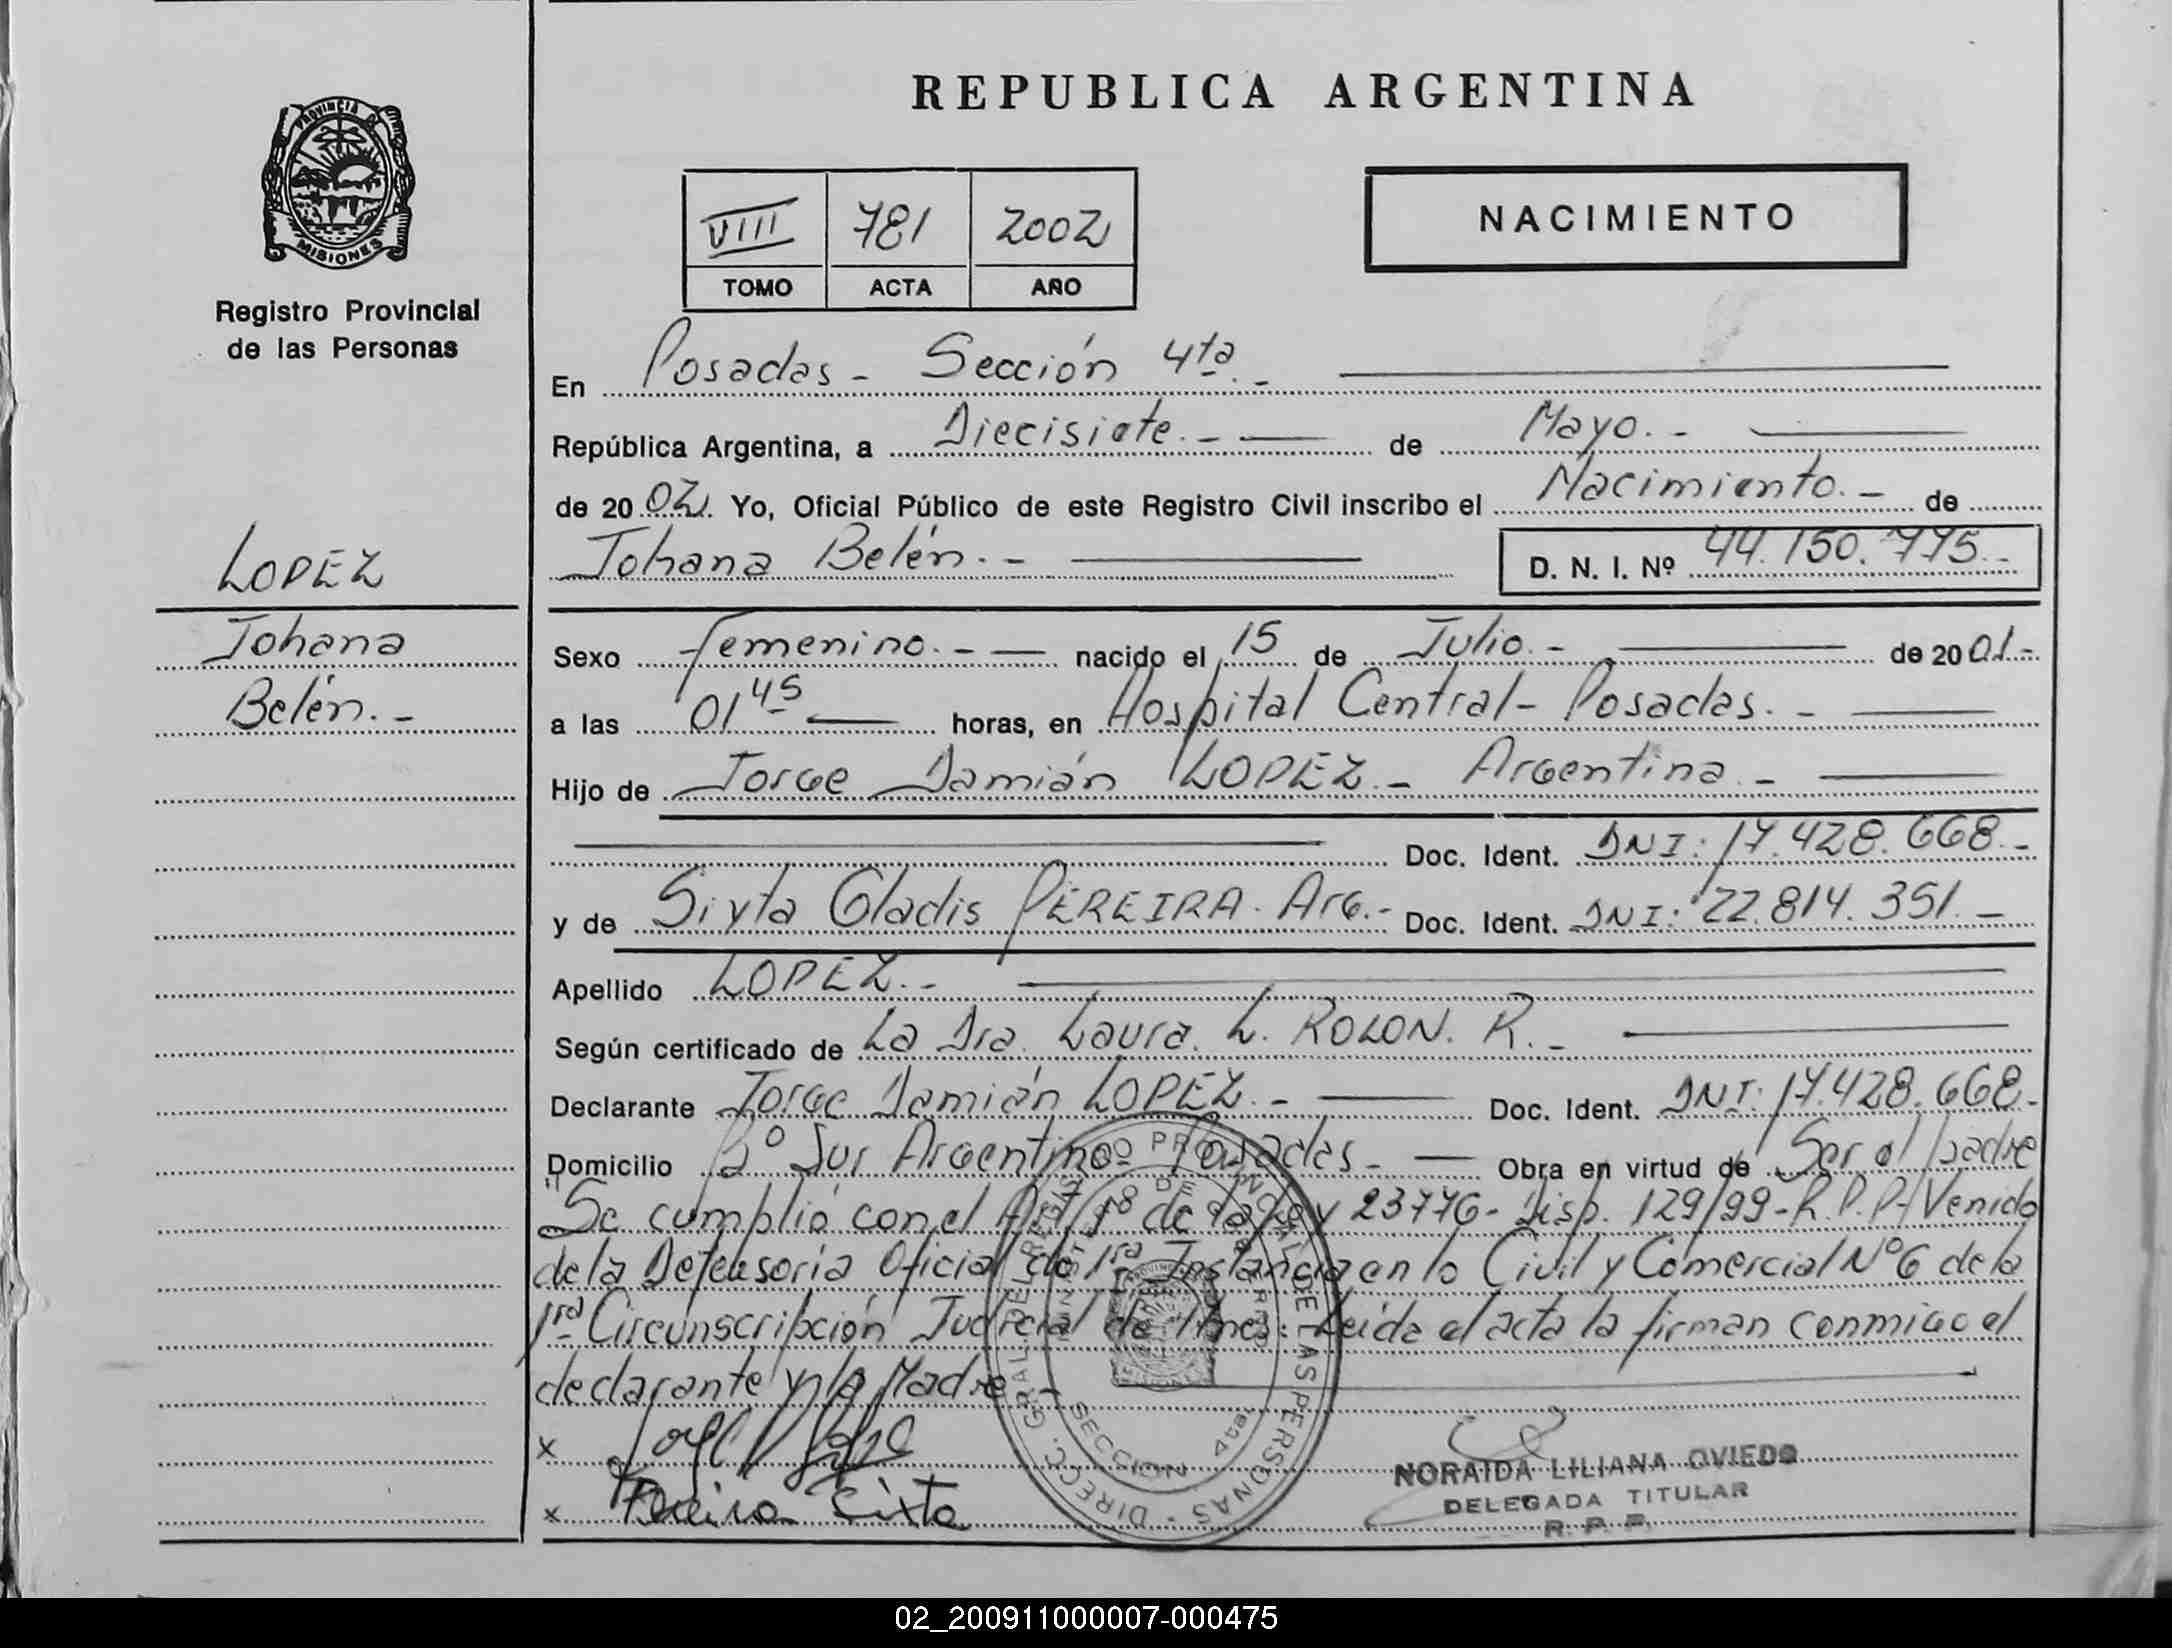 REPUBLICA ARGENTINA
PROVINCIA DE
MISIONES
Registro Provincial
de las Personas
VIII 781 2002
TOMO ACTA AÑO
NACIMIENTO
LOPEZ
Johana
Belén.-
En Posadas - Sección 4ta.-
República Argentina, a Diecisiete.- de Mayo.-
de 20 02 Yo, Oficial Público de este Registro Civil inscribo el Nacimiento.- de
Johana Belén.- D. N. I. Nº 44.150.775.-
Sexo Femenino.- nacido el 15 de Julio.- de 20 01.-
a las 01 45 horas, en Hospital Central - Posadas.-
Hijo de Jorge Damián LOPEZ.- Argentina.-
Doc. Ident. DNI: 17.428.668.-
y de Sixta Gladis PEREIRA. Arg.- Doc. Ident. DNI: 22.814.351.-
Apellido LOPEZ.-
Según certificado de La Dra. Laura. L. ROLON. R.-
Declarante Jorge Damián LOPEZ.- Doc. Ident. DNI: 17.428.668.-
Domicilio Bº Sur Argentino - Posadas.- Obra en virtud de Ser el padre
"Se cumplió con el Art 1º de la Ley 23776 - Disp. 129/99 - R.P.P. Venido
de la Defensoría Oficial de 1ra Instancia en lo Civil y Comercial Nº 6 de la
1ra Circunscripción Judicial de Mnes: Leída el acta la firman conmigo el
declarante y la Madre
x
x Pereira Sixta
DIRECC. GRAL. DEL REGISTRO PROVINCIAL DE LAS PERSONAS
SECCION 4ta
NORAIDA LILIANA OVIEDO
DELEGADA TITULAR
R. P. P.
02_200911000007-000475